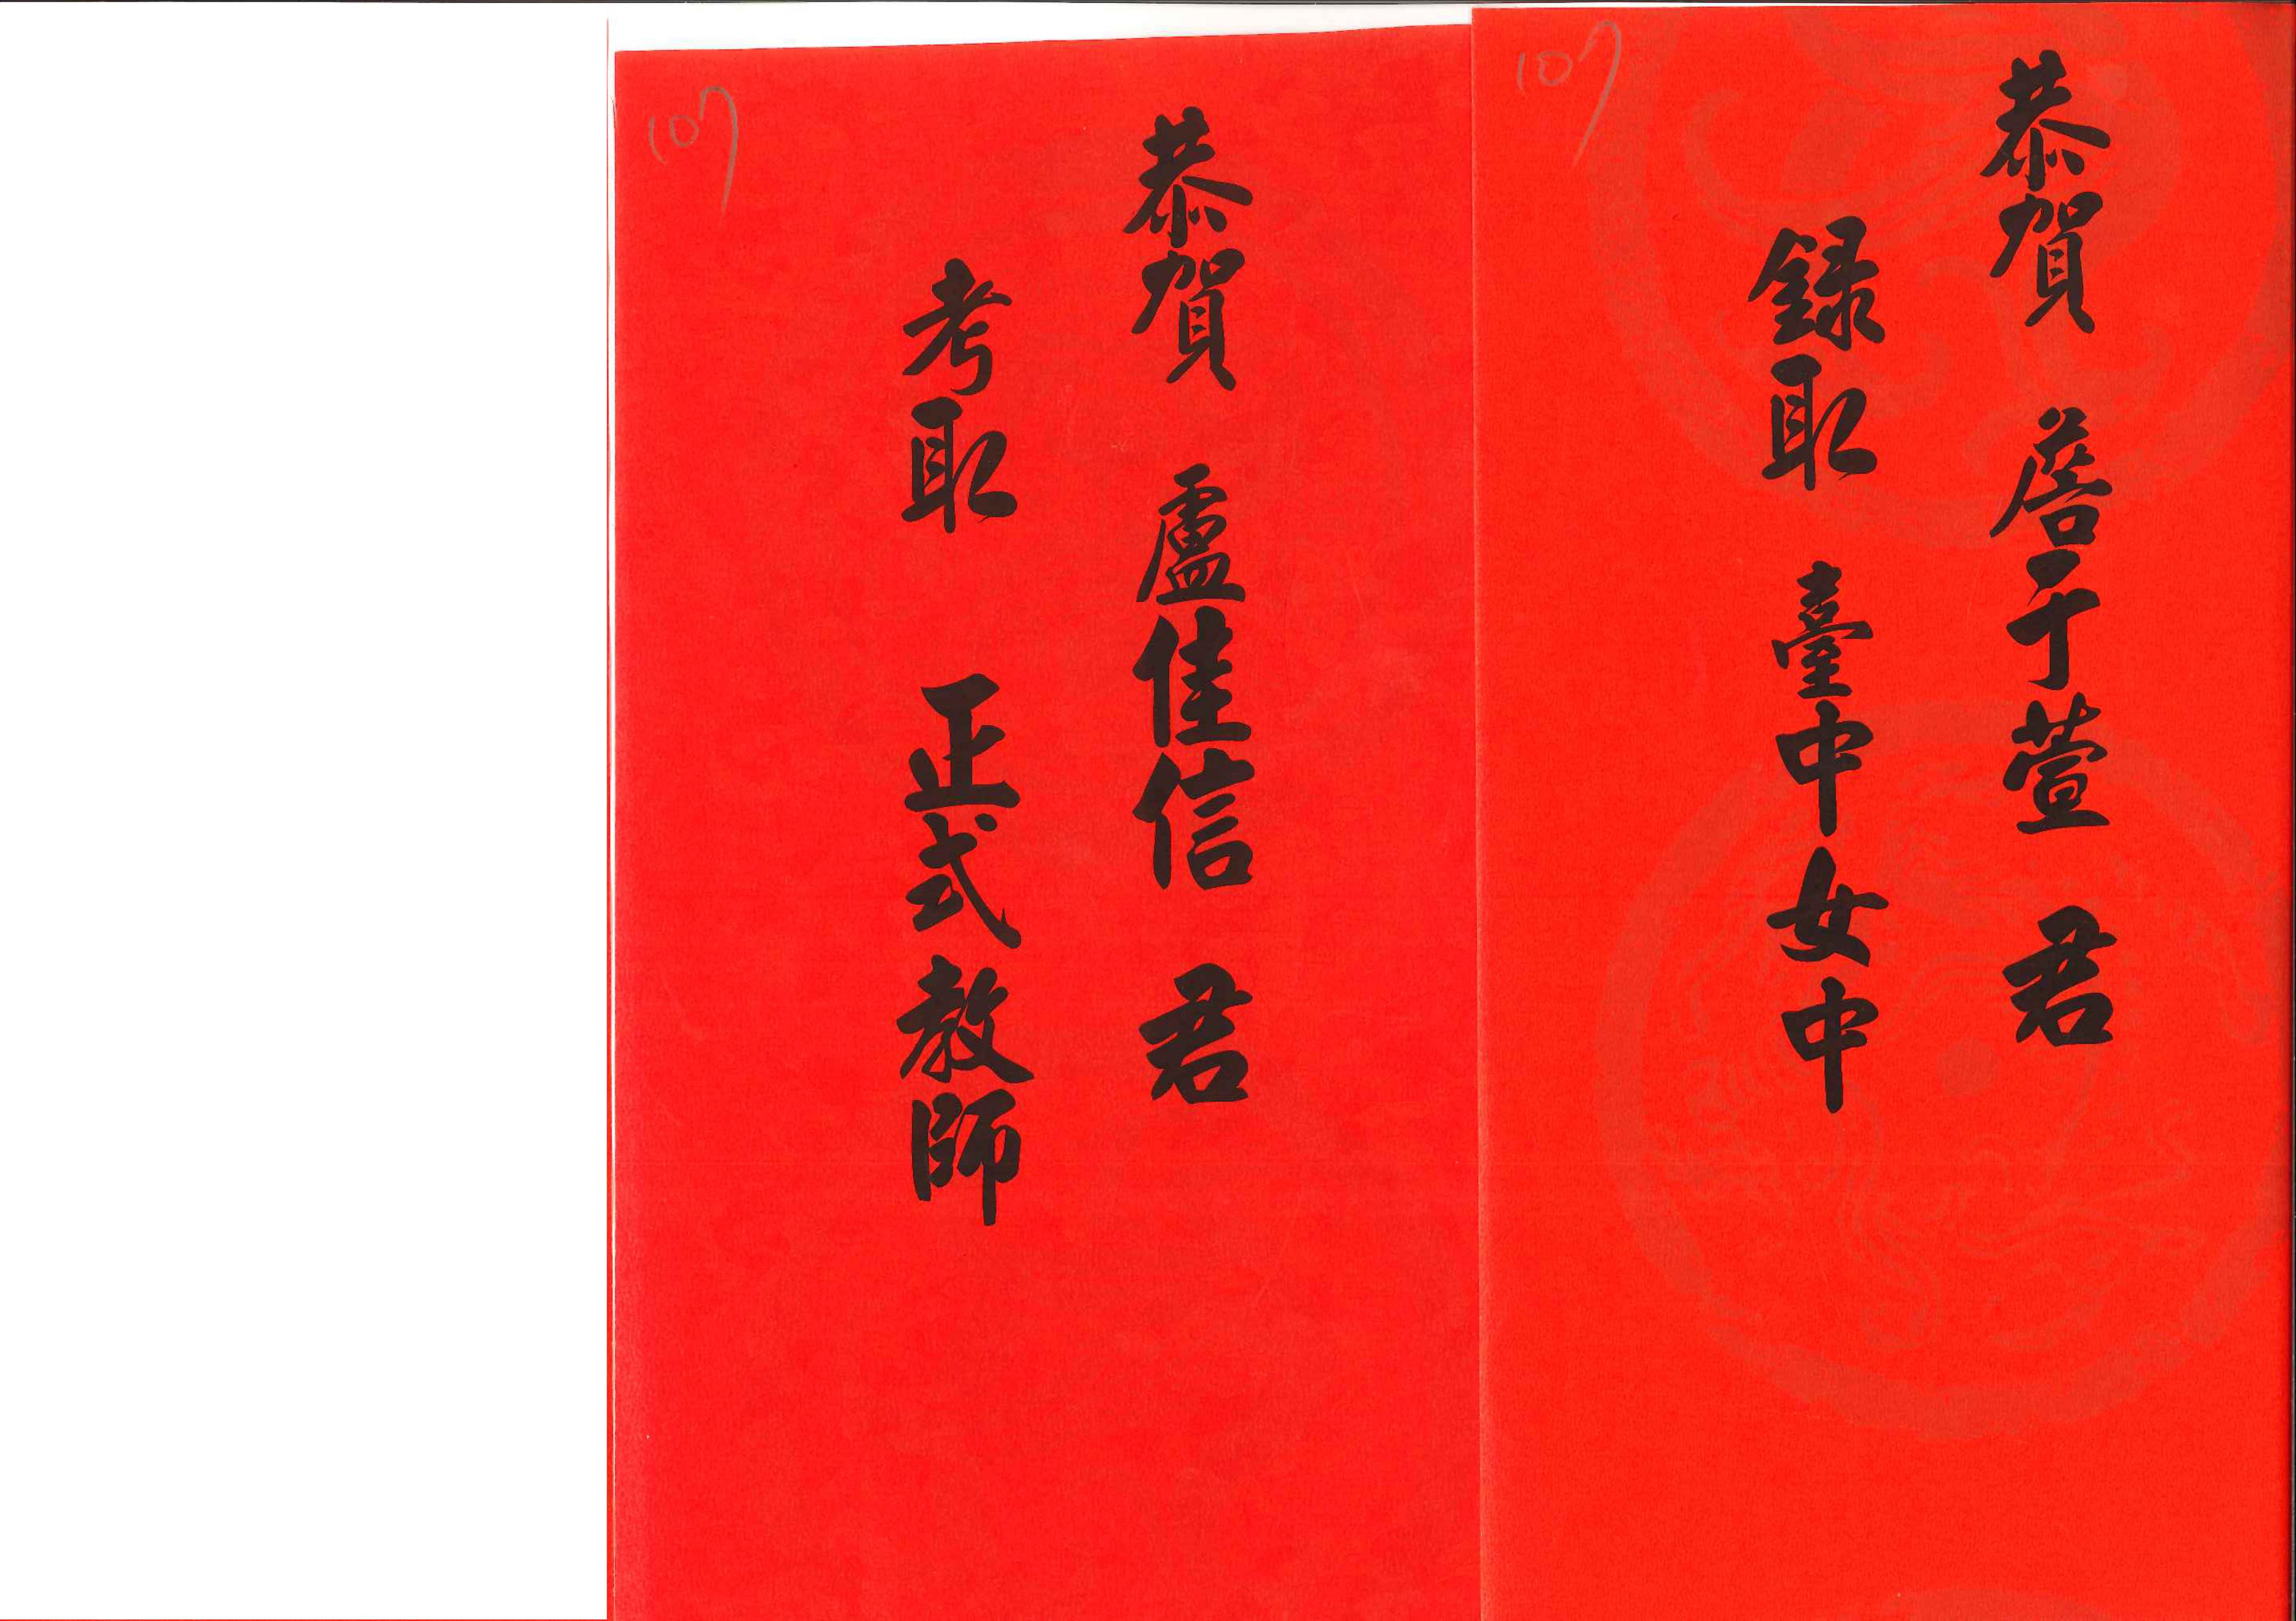 107
恭賀 詹于萱 君
錄取 臺中女中
107
恭賀 盧佳信 君
考取 正式教師